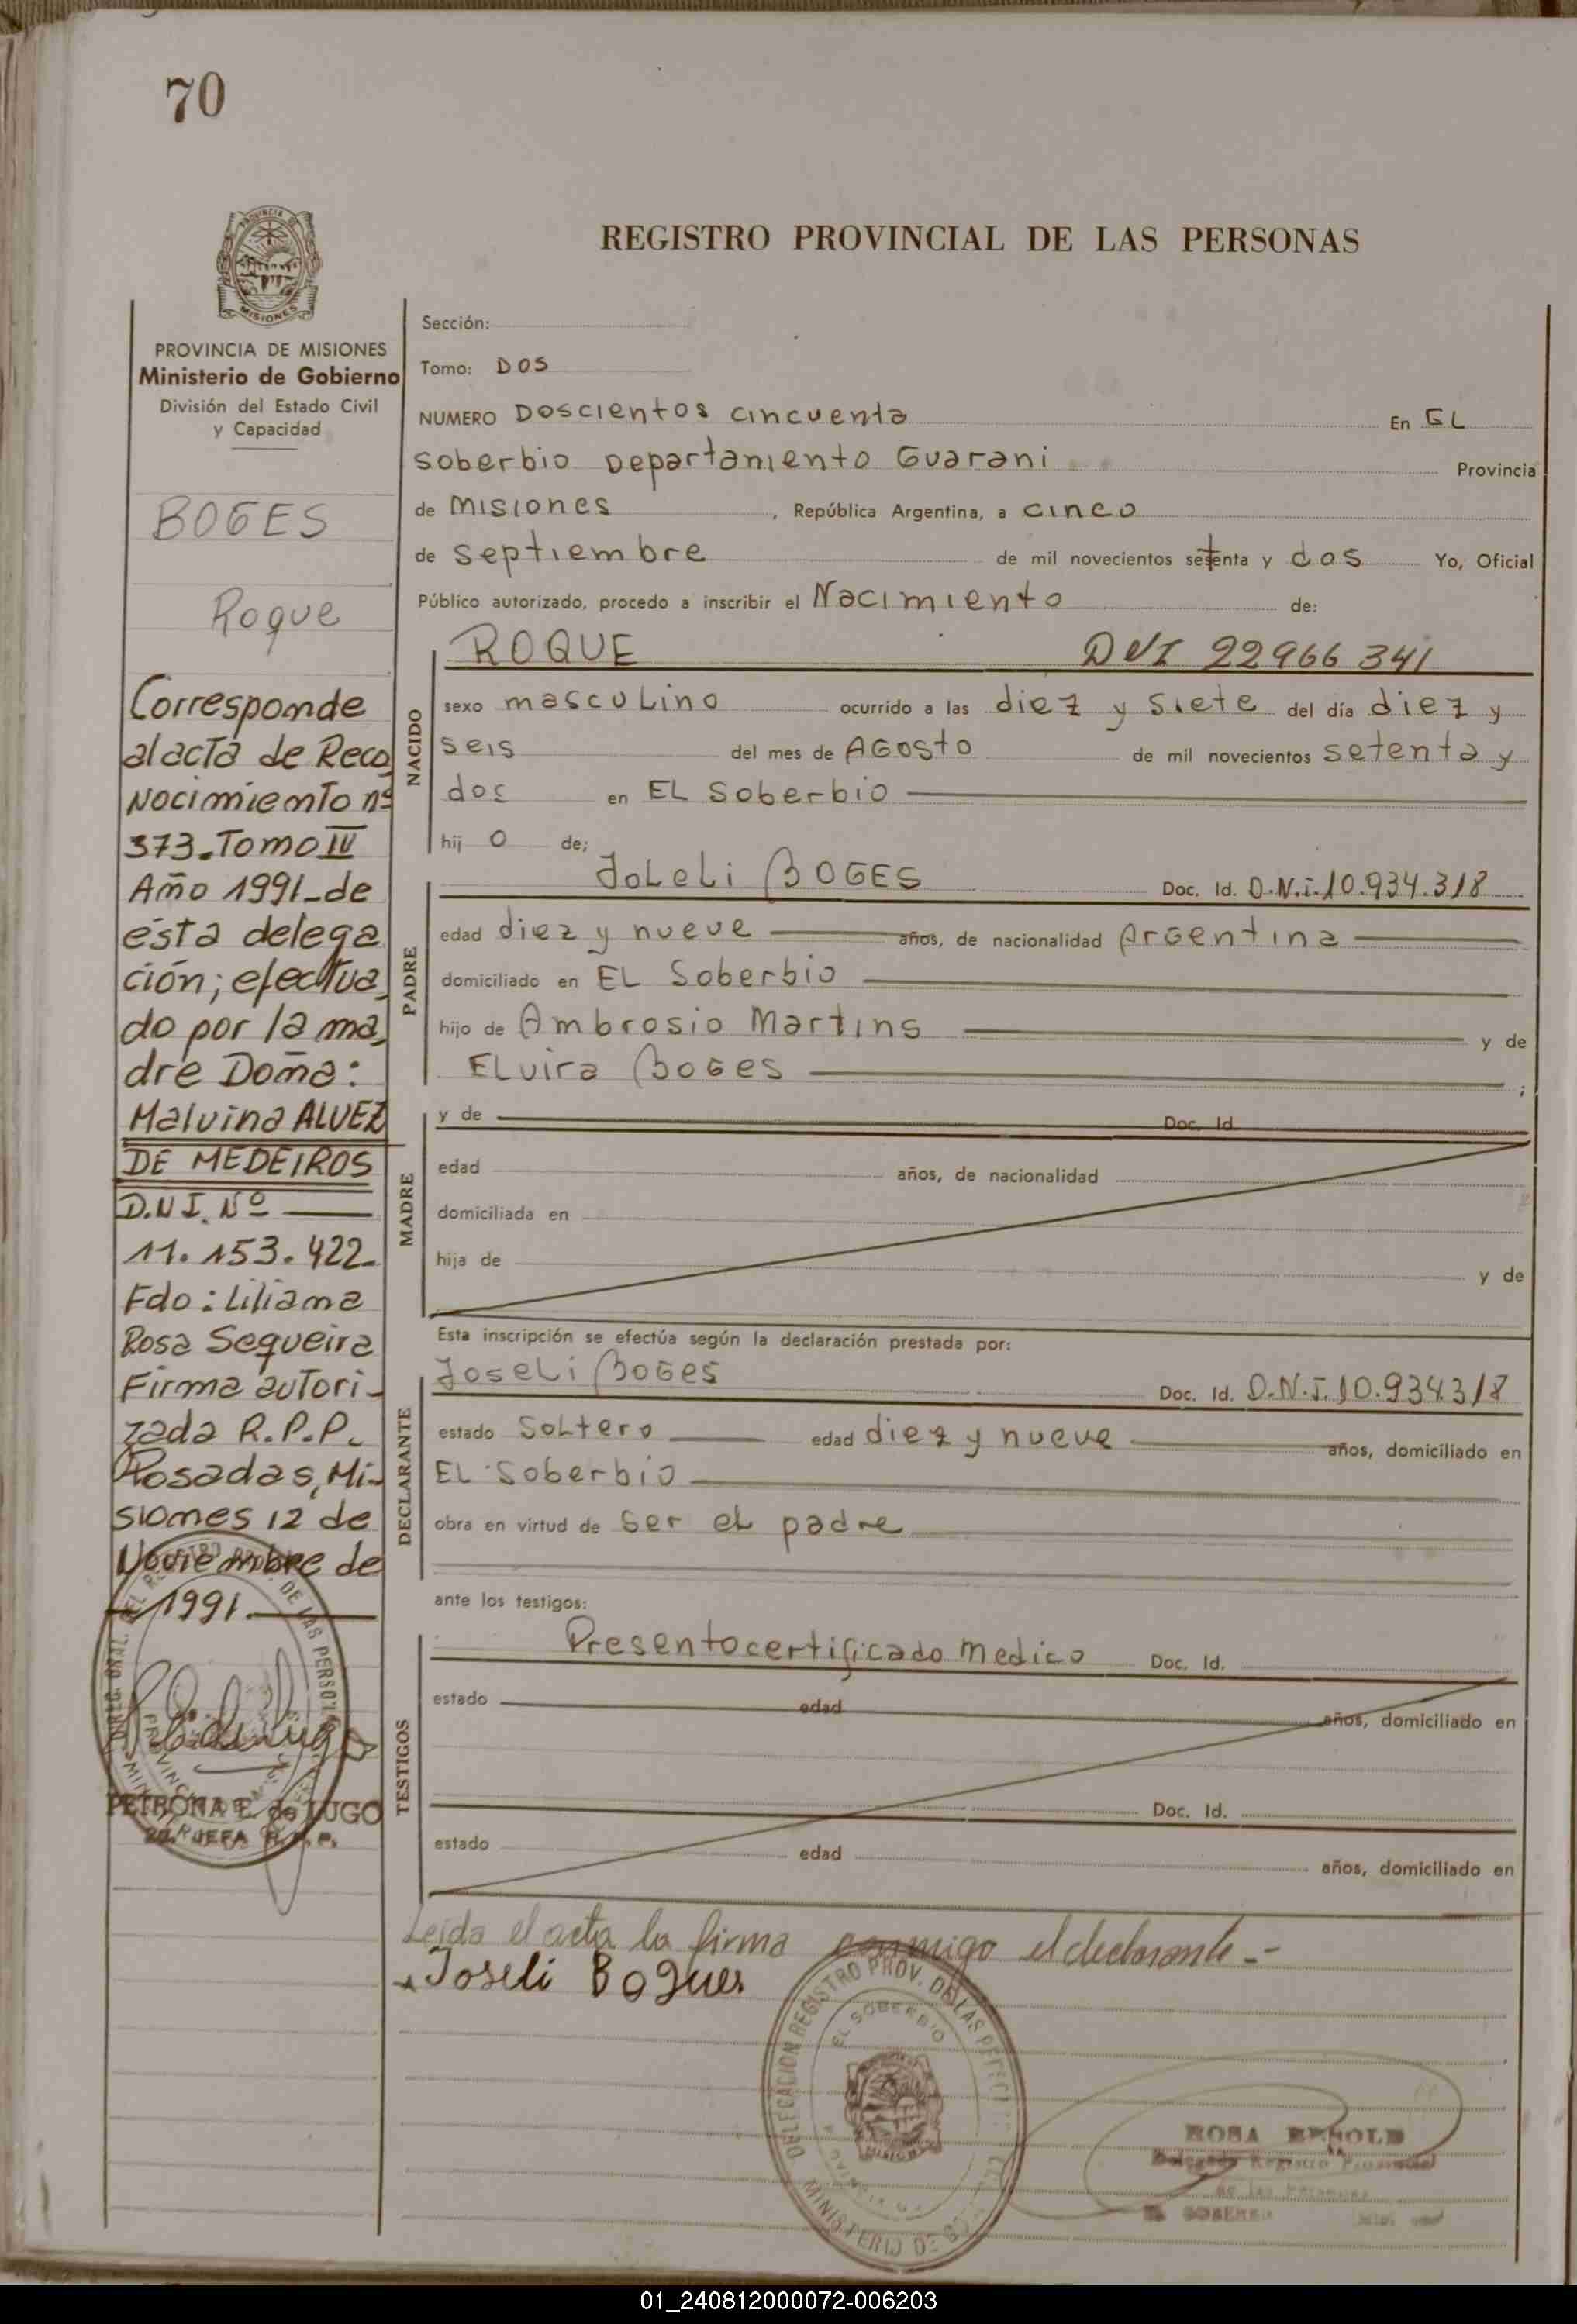 70
REGISTRO PROVINCIAL DE LAS PERSONAS
MISIONES
PROVINCIA DE MISIONES
Ministerio de Gobierno
División del Estado Civil
y Capacidad
BOGES
Roque
Corresponde
al acta de Reco
Nocimiento nº
373. Tomo IV
Año 1991_de
ésta delega
ción; efectua
do por la ma
dre Doña:
Malvina ALVEZ
DE MEDEIROS
D.N.I. Nº
11.153.422.
Fdo: Liliana
Rosa Sequeira
Firma autori-
zada R.P.P.
Posadas, Mi-
siones 12 de
Noviembre de
1991.
PETRONA E. de LUGO
JEFA R.P.P.
Sección:
Tomo: DOS
NUMERO Doscientos cincuenta En EL
Soberbio Departamiento Guarani Provincia
de Misiones, República Argentina, a cinco
de septiembre de mil novecientos setenta y dos Yo, Oficial
Público autorizado, procedo a inscribir el Nacimiento de:
NACIDO
ROQUE DNI 22966 341
sexo masculino ocurrido a las diez y siete del día diez y
seis del mes de Agosto de mil novecientos setenta y
dos en EL Soberbio
hij o de;
PADRE
Joleli BOGES Doc. Id. D.N.i. 10.934.318
edad diez y nueve años, de nacionalidad Argentina
domiciliado en EL Soberbio
hijo de Ambrosio Martins y de
ELvira Boges ;
MADRE
y de Doc. Id
edad años, de nacionalidad
domiciliada en
hija de y de
Esta inscripción se efectúa según la declaración prestada por:
DECLARANTE
Joseli Boges Doc. Id. D.N.I. 10.934318
estado Soltero edad diez y nueve años, domiciliado en
EL Soberbio
obra en virtud de ser el padre
ante los testigos:
TESTIGOS
Presento certificado Medico Doc. Id.
estado edad años, domiciliado en
Doc. Id.
estado edad años, domiciliado en
Leída el acta la firma conmigo el declarante.-
Joseli Bogues
DELEGACION REGISTRO PROV. DE LAS
EL SOBERBIO
MINISTERIO DE
ROSA
Delegado Registro Provincial
de las Personas
01_240812000072-006203